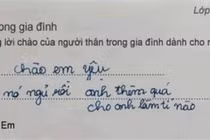 Lớp
ong gia đình
g lời chào của người thân trong gia đình dành cho n
chào em yêu
nó ngủ rồi anh thèm quá
cho anh làm tí nào
Em